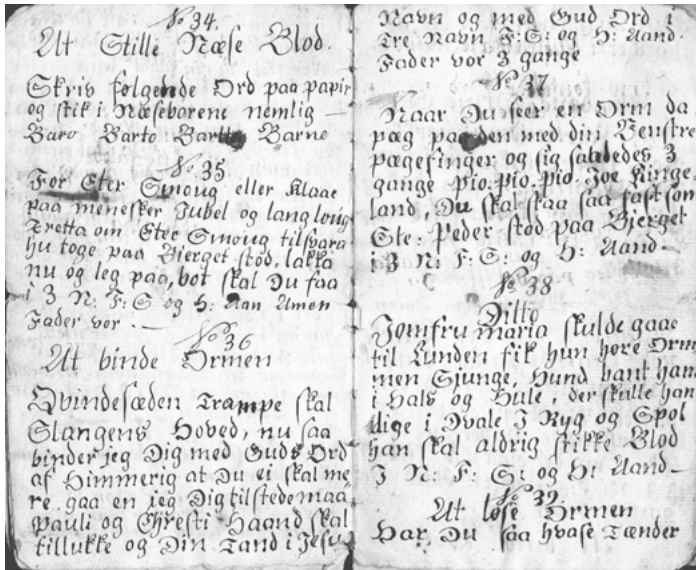 No 34.
At Stille Næse Blod.
Skriv følgende Ord paa papir
og stik i Næseborene nemlig
Baro Barto Bartto Barne
No 35
For Eter Smoug eller Klaae
paa menesker Jubel og lang loug
Tretta om Eter Smoug tilsvara
hu toge paa Bierget stod, lakka
nu og leg paa, bot skal Du faa
i 3 N: F: S og H: Aan Amen
Fader vor.
No 36
At binde Ormen
Qvindesæden Trampe skal
Slangens Hoved, nu saa
binder jeg Dig med Guds Ord
af Himmerig at Du ei skal me
re gaa en jeg Dig tilstede maa
Pauli og Christi Haand skal
tillukke og Din Tand i Jesu
Navn og med Gud Ord i
Tre Navn F: S: og H: Aand.
Fader vor 3 gange
No 37
Naar Du seer en Orm da
pæg paa den med din Venstre
pægefinger og sig saaledes 3
gange Pio. pio. pio. Joe Ringe
land, Du skal staa saa fast som
Ste: Peder stod paa Bierget
i 3 N: F: S: og H: Aand
No 38
Ditto
Jomfru maria skulde gaae
til Lunden fik hun høre Orm
men Sjunge, Hund bant ham
i Hals og Hule, der skulle han
lige i Dvale I Ryg og Spol
han skal aldrig stikke Blod
I N: F: S: og H: Aand
No 39.
At løse Ormen
Har Du saa hvase Tænder